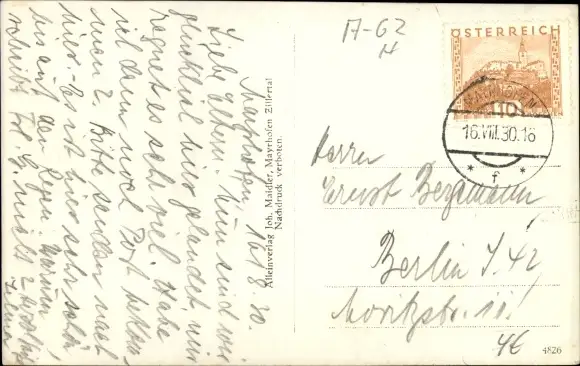 Mayrhofen, 16.8.30.
Liebe Eltern! Nun sind wir
glücklich hier gelandet, nur
regnet es sehr viel. Habe
viel dann noch Post
men 2. Bitte senden nach
hier. Es ist hier sehr schön
bis auf den Regen. Warum
schreibt Frl. G. nicht?
Alleinverlag Joh. Maidler, Mayrhofen Zillertal
Nachdruck verboten.
A-62
H
ÖSTERREICH
MAYRHOFEN
10
16.VIII.30.16
* f *
Herrn
Ernst Bergmann
Berlin S. 42
Moritzstr. 11!
4826